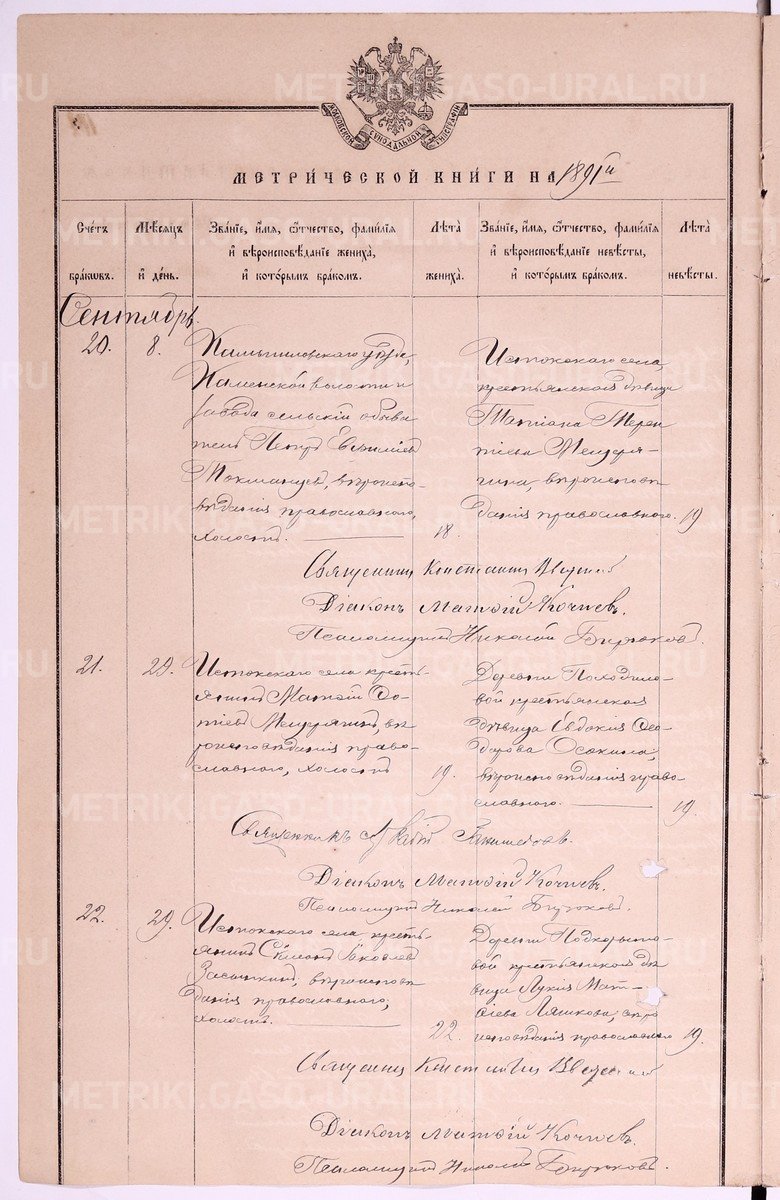 МОСКОВСКОЙ СѴНОДАЛЬНОЙ ТИПОГРАФІИ
МЕТРИ́ЧЕСКОЙ КНИ́ГИ НА 1891й
Сче́тъ бра́кѡвъ.
Мѣ́сяцъ и де́нь.
Зва́нїе, и́мя, ѻ҆́тчество, фами́лїя и вѣроисповѣ́данїе жениха̀, и кото́рымъ бра́комъ.
Лѣ́та жениха̀.
Зва́нїе, и́мя, ѻ҆́тчество, фами́лїя и вѣроисповѣ́данїе невѣ́сты, и кото́рымъ бра́комъ.
Лѣ́та невѣ́сты.
Сентябрь
20. 8.
Камышловскаго уѣзда,
Каменской волости и
завода сельскій обыва-
тель Петръ
вѣроиспо-
вѣданія православнаго,
холостъ. 18.
Истокскаго села,
крестьянская дѣвица
Татіана Терен-
тіева Мещеря-
гина, вѣроисповѣ
данія православнаго. 19
Священникъ Константинъ
Діаконъ Матѳій Кочневъ.
Псаломщикъ Николай Бирюковъ.
21. 20.
Истокскаго села кресть-
янинъ Матѳій Ѳо-
тіевъ Мещерягинъ, вѣ
роисповѣданія право-
славнаго, холостъ 19.
Деревни
вой крестьянская
дѣвица Евдокія Ѳео-
дорова Осокина,
вѣроисповѣданія право-
славнаго. 19.
Священникъ
Діаконъ Матѳій Кочневъ.
Псаломщикъ Николай Бирюковъ.
22. 29.
Истокскаго села кресть-
янинъ Сѵмеонъ Іаковлевъ
Засыпкинъ, вѣроисповѣ
данія православнаго,
холостъ. 22.
Деревни
вой крестьянская дѣ
вица Лукія Мат-
ѳіева Ляшкова, вѣро
исповѣданія православнаго 19.
Священникъ Константинъ
Діаконъ Матѳій Кочневъ.
Псаломщикъ Николай Бирюковъ.
METRIKI.GASO-URAL.RU